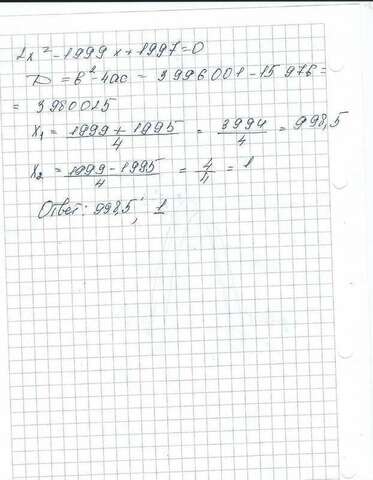 2x² - 1999x + 1997 = 0
D = в² - 4ac = 3996001 - 15976 =
= 3980025
x₁ = (1999 + 1995)/4 = 3994/4 = 998,5
x₂ = (1999 - 1995)/4 = 4/4 = 1
Ответ: 998,5; 1